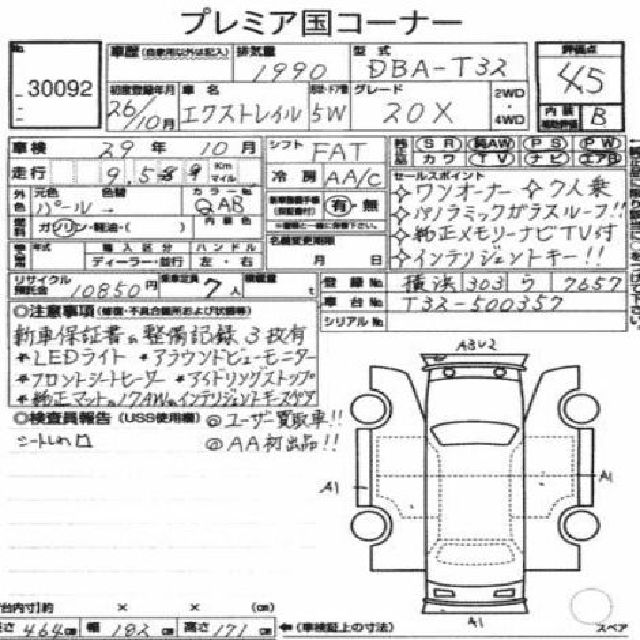 プレミア国コーナー
No.
30092
車歴 (自家用以外は記入)
排気量
1990
型式
DBA-T32
評価点
4.5
初度登録年月
26/10月
車名
エクストレイル
5W
グレード
20X
2WD
・
4WD
内装
B
車検 29年 10月
シフト FAT
SR 純AW PS PW
カワ TV ナビ エアB
走行
Km
マイル
冷房 AA/C
セールスポイント
☆ワンオーナー ☆7人乗
☆パノラミックガラスルーフ!!
☆純正メモリーナビTV付
☆インテリジェントキー!!
外色
元色
パール
色替
カラーNo.
QAB
有・無
燃料 ガソリン・軽油・( )
内装色
年式
輸入区分
ディーラー・並行
ハンドル
左・右
名義変更期限
月 日
リサイクル預託金 10850円
乗車定員 7人
積載量 t
登録No. 横浜 303 ラ 7657
車台No. T32-500357
シリアルNo.
◎注意事項 (修復・不具合箇所および状態等)
新車保証書 整備記録 3枚有
*LEDライト *アラウンドビューモニター
*フロントシートヒーター *アイドリングストップ
*純正マット 17AW インテリジェントキースペア
◎検査員報告 (USS使用欄)
◎ユーザー買取車!!
◎AA初出品!!
A3U2
A1
A1
A1
荷台内寸 約 × × (cm)
長さ 464cm 幅 182cm 高さ 171cm
←(車検証上の寸法)
スペア